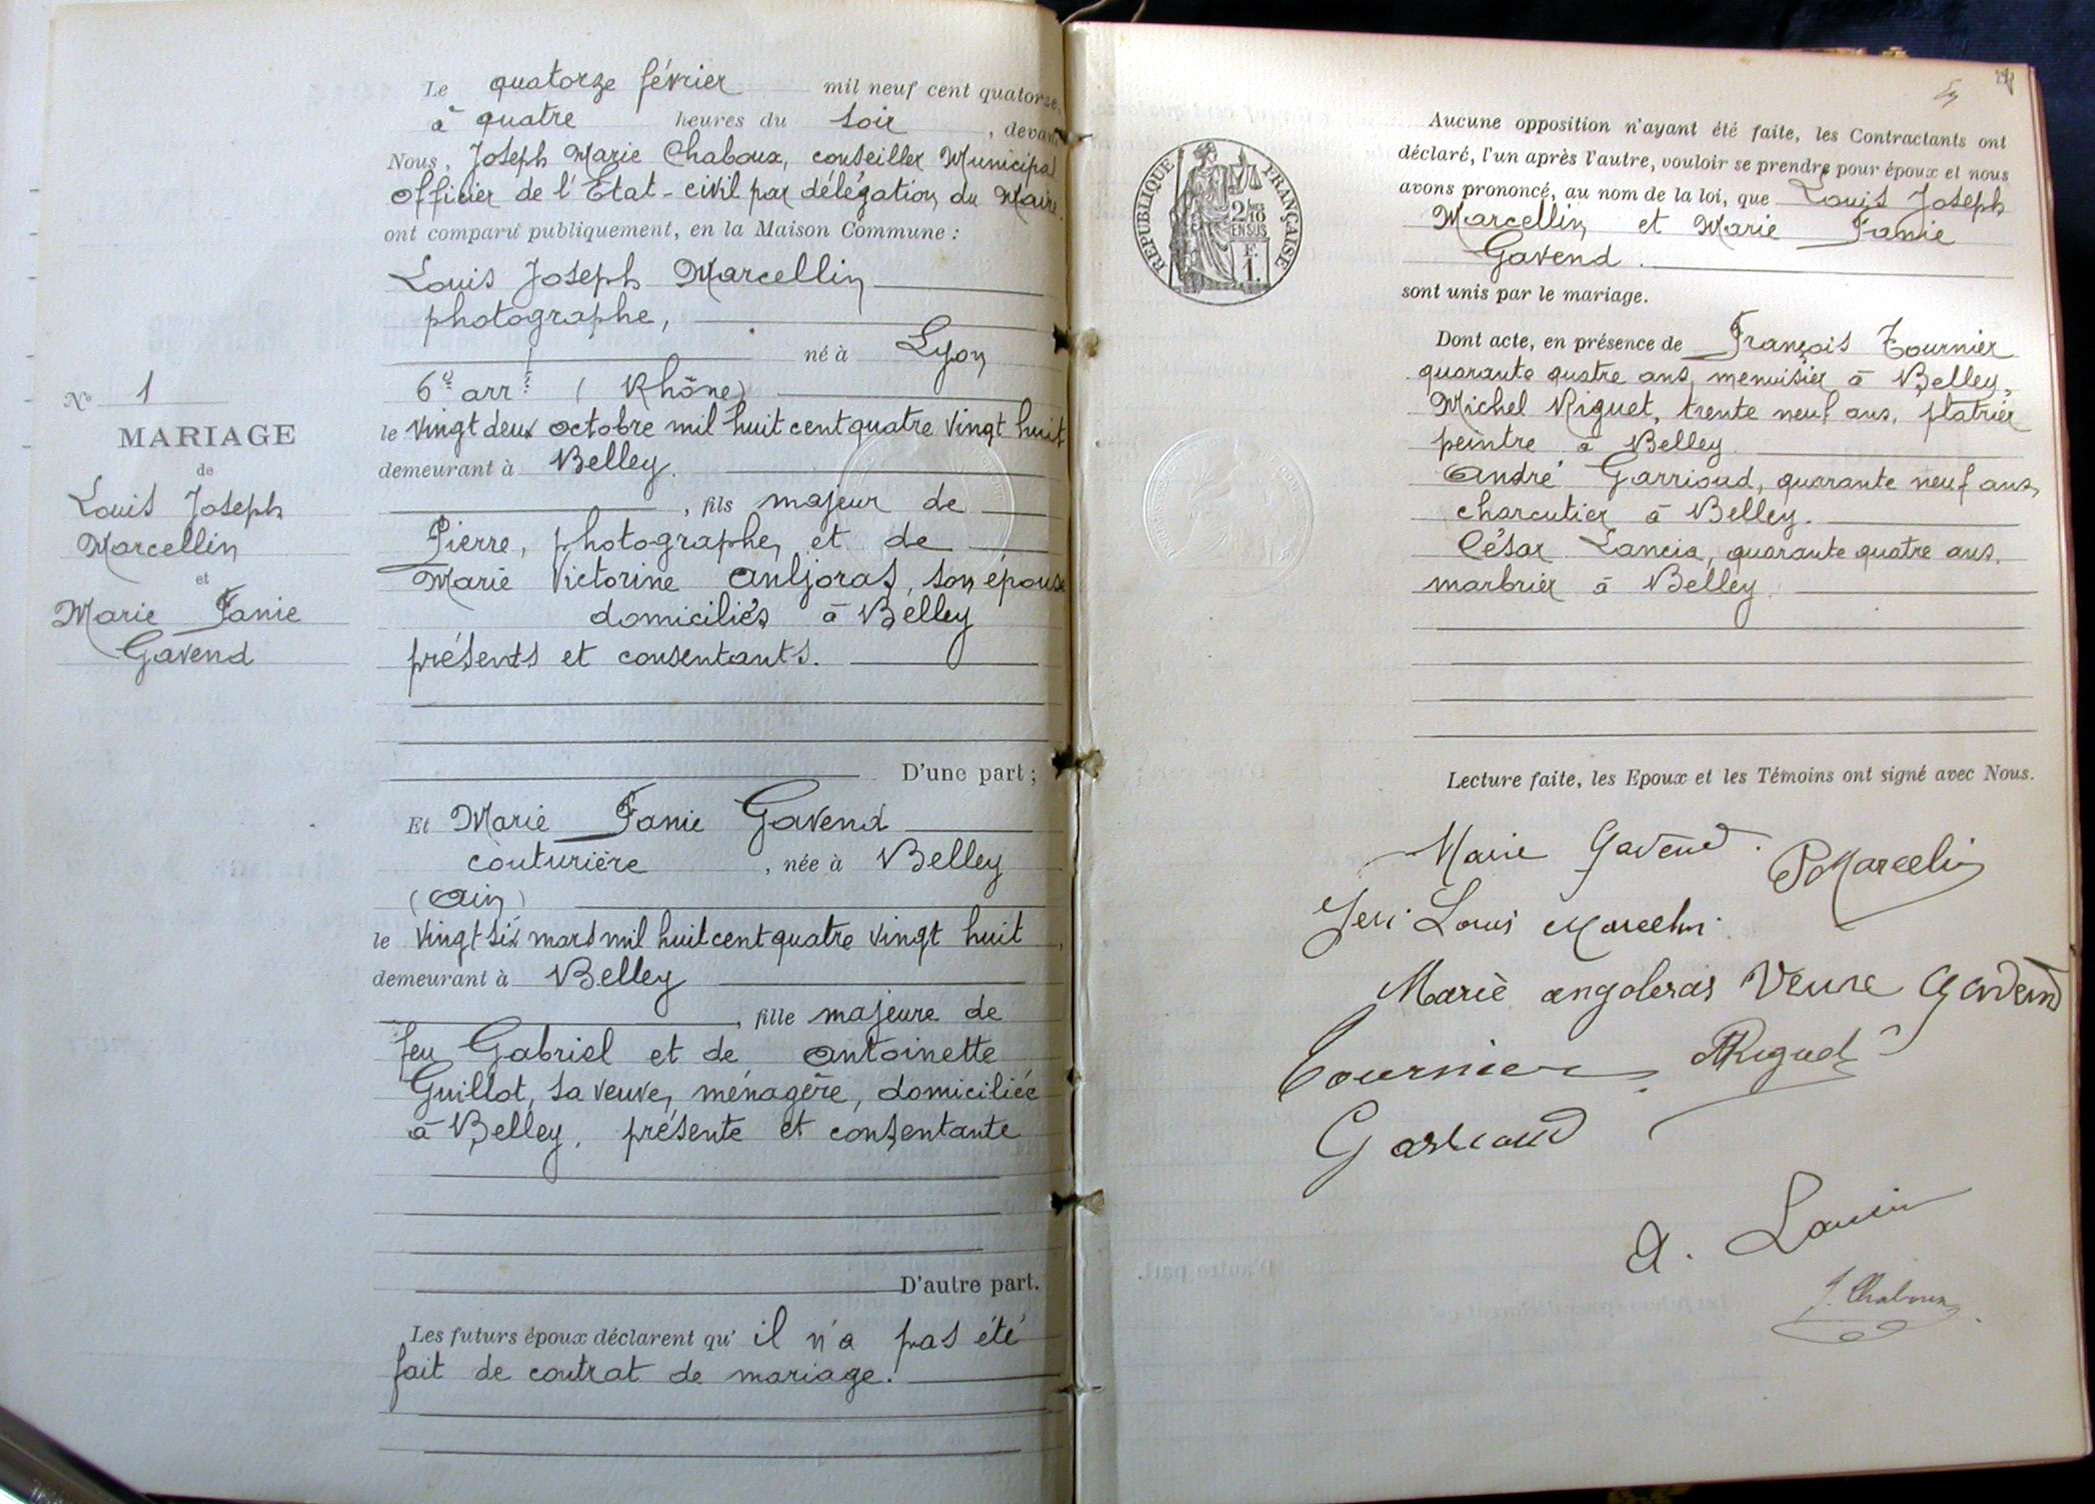 Le quatorze février mil neuf cent quatorze,
à quatre heures du soir, devant
Nous, Joseph Marie Chaboux, conseiller Municipal
officier de l'Etat-civil par délégation du Maire.
ont comparu publiquement, en la Maison Commune :
Louis Joseph Marcellin
photographe,
né à Lyon
6e arrt (Rhône)
le vingt deux octobre mil huit cent quatre vingt huit
demeurant à Belley.
, fils majeur de
Pierre, photographe, et de
Marie Victorine Anljoras, son épouse
domiciliés à Belley
présents et consentants.
D'une part ;
Et Marie Fanie Gavend
couturière, née à Belley
(Ain)
le vingt six mars mil huit cent quatre vingt huit,
demeurant à Belley
, fille majeure de
feu Gabriel et de Antoinette
Guillot, sa veuve, ménagère, domiciliée
à Belley, présente et consentante
D'autre part.
Les futurs époux déclarent qu'il n'a pas été
fait de contrat de mariage.
No 1
MARIAGE
de
Louis Joseph
Marcellin
et
Marie Fanie
Gavend
RÉPUBLIQUE FRANÇAISE
2/10
EN SUS
F.
1.
Aucune opposition n'ayant été faite, les Contractants ont
déclaré, l'un après l'autre, vouloir se prendre pour époux et nous
avons prononcé, au nom de la loi, que Louis Joseph
Marcellin et Marie Fanie
Gavend.
sont unis par le mariage.
Dont acte, en présence de François Tournier
quarante quatre ans, menuisier à Belley,
Michel Riguet, trente neuf ans, platrier
peintre à Belley
André Garrioud, quarante neuf ans,
charcutier à Belley.
César Lancia, quarante quatre ans.
marbrier à Belley.
Lecture faite, les Epoux et les Témoins ont signé avec Nous.
Marie Gavend.
P Marcelin
Louis Marcelin
Marie angoleras Veuve Gavend
Tournier
Riguet
Garrioud
A. Lancia
J. Chaboux